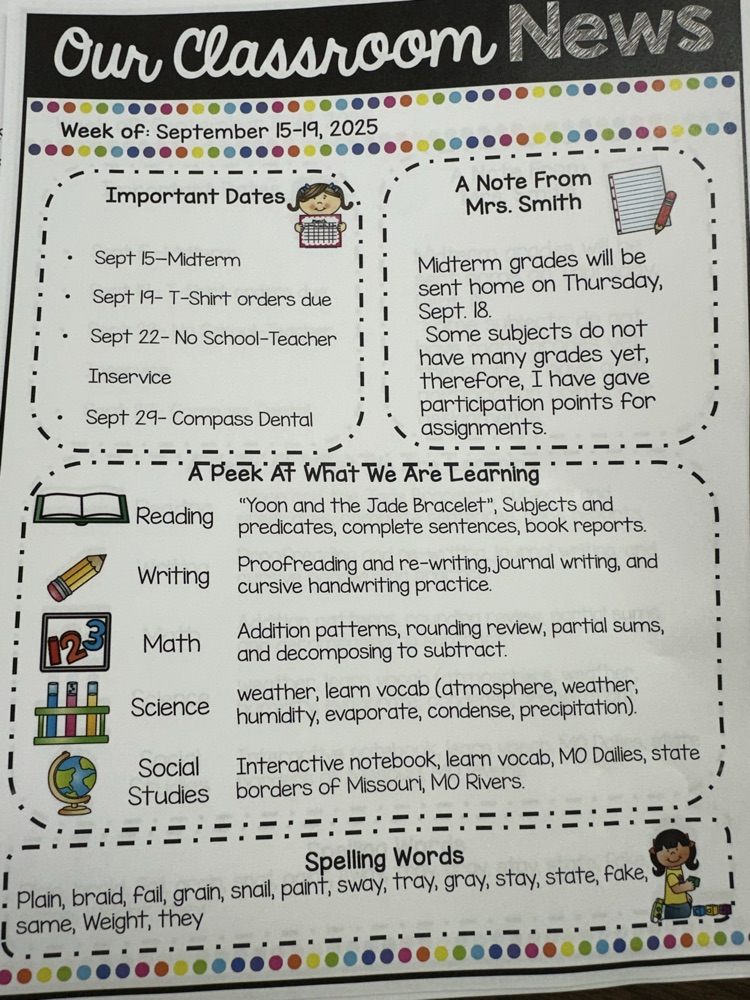 Our Classroom News
Week of: September 15-19, 2025
Important Dates
• Sept 15-Midterm
• Sept 19- T-Shirt orders due
• Sept 22- No School-Teacher
Inservice
• Sept 29- Compass Dental
A Note From
Mrs. Smith
Midterm grades will be
sent home on Thursday,
Sept. 18.
Some subjects do not
have many grades yet,
therefore, I have gave
participation points for
assignments.
A Peek At What We Are Learning
Reading
"Yoon and the Jade Bracelet", Subjects and
predicates, complete sentences, book reports.
Writing
Proofreading and re-writing, journal writing, and
cursive handwriting practice.
123
Math
Addition patterns, rounding review, partial sums,
and decomposing to subtract.
Science
weather, learn vocab (atmosphere, weather,
humidity, evaporate, condense, precipitation).
Social
Studies
Interactive notebook, learn vocab, MO Dailies, state
borders of Missouri, MO Rivers.
Spelling Words
Plain, braid, fail, grain, snail, paint, sway, tray, gray, stay, state, fake,
same, Weight, they